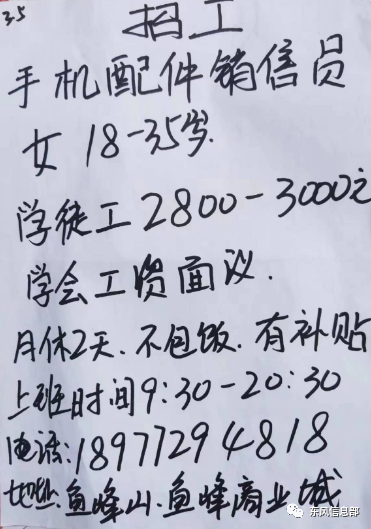 3.5
招工
手机配件销信员
女 18-35岁.
学徒工2800-3000元
学会工资面议.
月休2天.不包饭.有补贴
上班时间9:30-20:30
电话:18977294818
地址:鱼峰山.鱼峰商业城
东风信息部